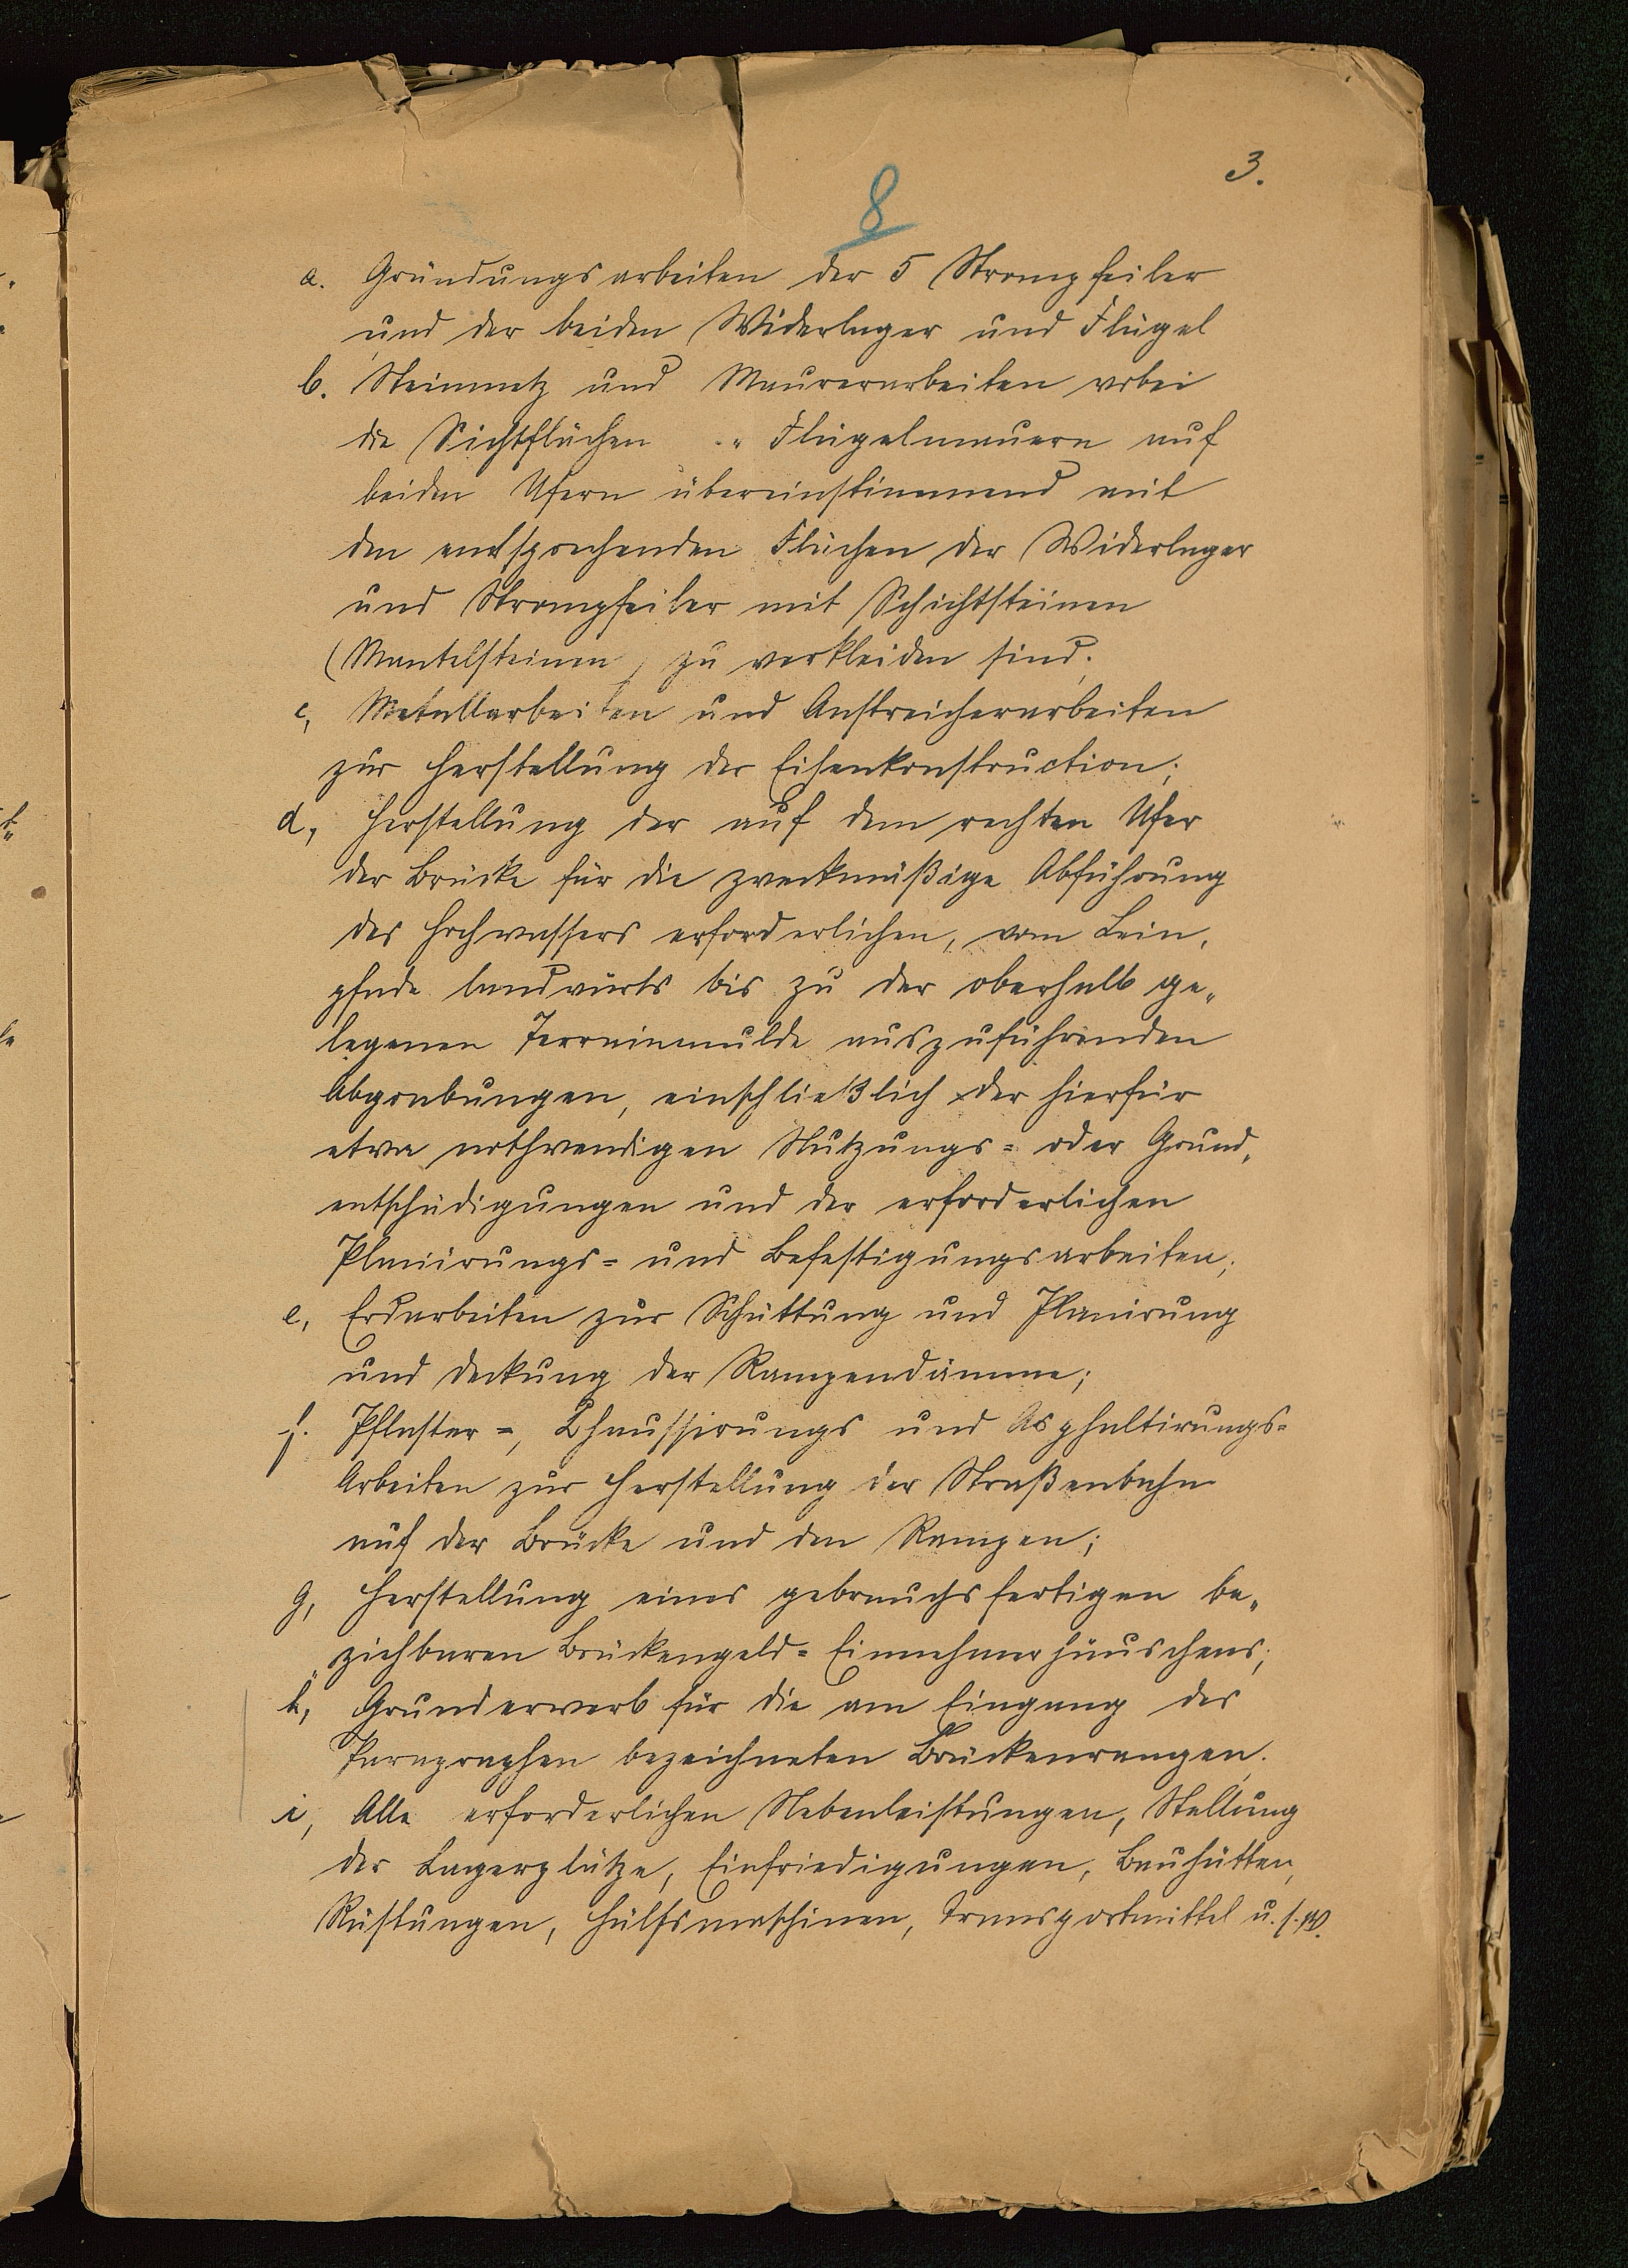 3.
8
a. Gründungsarbeiten der 5 Strompfeiler
und der beiden Widerlager und Flügel
b. Steinmetz und Maurerarbeiten wobei
die Sichtflächen " Flügelmauern auf
beiden Ufern übereinstimmend mit
den entsprechenden Flächen der Widerlager
und Strompfeiler mit Schichtsteinen
(Mantelsteinen) zu verkleiden sind.
c, Metallarbeiten und Anstreicherarbeiten
zur Herstellung der Eisenkonstruction;
d, Herstellung der auf dem rechten Ufer
der Brücke für die zweckmäßige Abführung
des Hochwassers erforderlichen, vom Lein,
pfade landwärts bis zu der oberhalb ge„
legenen Terrainmulde auszuführenden
Abgrabungen, einschließlich der hierfür
etwa nothwendigen Nutzungs= oder Grund„
entschädigungen und der erforderlichen
Planirungs= und Befestigungsarbeiten;
e, Erdarbeiten zur Schüttung und Planirung
und Deckung der Rampendämme;
f. Pflaster=, Chaussirungs und Asphaltirungs=
Arbeiten zur Herstellung der Straßenbahn
auf der Brücke und den Rampen;
g, Herstellung eines gebrauchsfertigen be„
ziehbaren Brückengeld=Einnehmerhäuschens;
h, Grunderwerb für die am Eingang des
Paragraphen bezeichneten Brückenrampen.
i, Alle erforderlichen Nebenleistungen, Stellung
der Lagerplätze, Einfriedigungen, Bauhütten,
Rüstungen, Hülfsmaschinen, Transportmittel u.s.w.